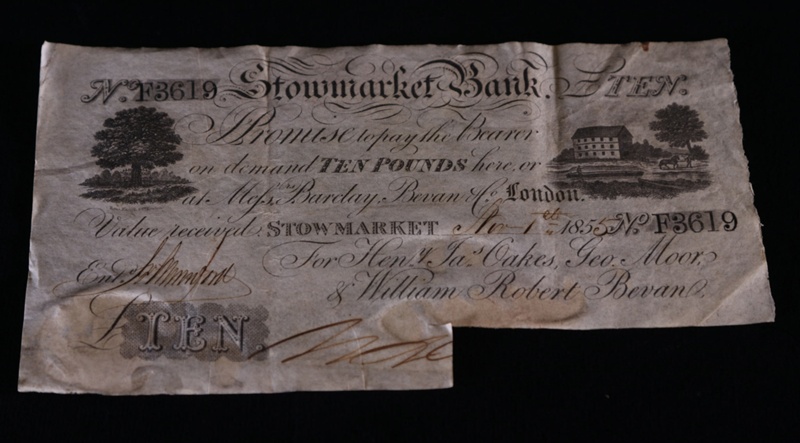 No. F3619. Stowmarket Bank. £ TEN.
I Promise to pay the Bearer
on demand TEN POUNDS here, or
at Messrs. Barclay, Bevan & Co. London.
Value received. STOWMARKET Nov 1855 No F3619
For Heny. Jas. Oakes, Geo. Moor,
& William Robert Bevan.
Entd.
£ TEN.